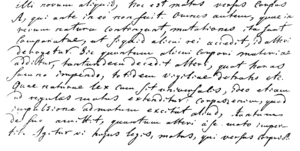 illi novum aliquid, hoc est motus versus corpus
A, qui ante in eo non fuit. Omnes autem, quae in
rerum natura contingunt, mutationes ita sunt
comparatae, ut si quid alicui rei accedit, id alteri
derogetur. Sic quantum alicui corpori materiae
additur, tantundem decedit alteri, quot horas
somno impendo, totidem vigiliae detraho etc.
Quae naturae lex cum sit universalis, ideo etiam
ad regulas motus extenditur: corpus enim, quod
impulsione ad motum excitat aliud, tantum
de suo amittit, quantum alteri a se moto imper-
tit. Igitur vi huius legis, motus, qui versus corpus B